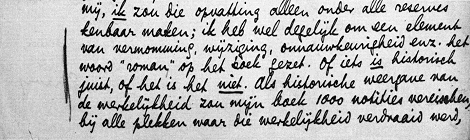 mij, ik zou die opvatting alleen onder alle reserves
kenbaar maken; ik heb wel degelijk om een element
van vermomming, wijziging, onnauwkeurigheid enz. het
woord "roman" op het boek gezet. Of iets is historisch
juist, of het is het niet. Als historische weergave van
de werkelijkheid zou mijn boek 1000 notities vereischen,
bij alle plekken waar die werkelijkheid verdraaid werd,